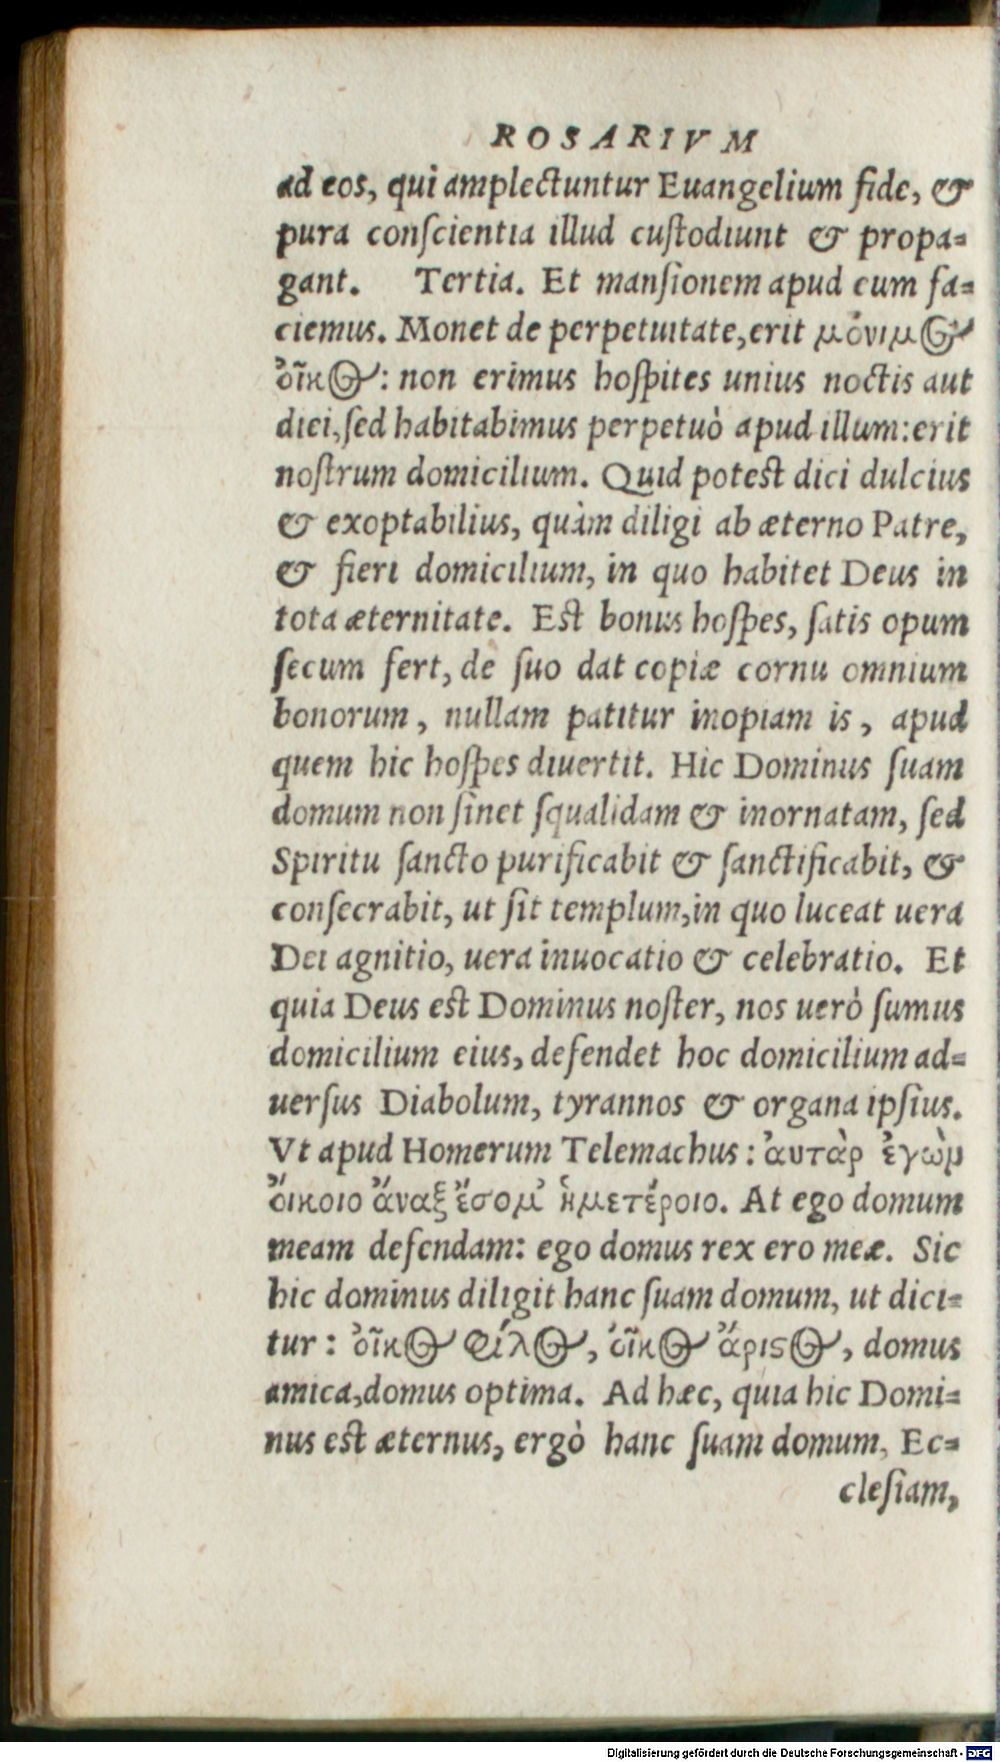 ROSARIVM
ad eos, qui amplectuntur Euangelium fide, &
pura conſcientia illud cuſtodiunt & propa=
gant. Tertia. Et manſionem apud eum fa=
ciemus. Monet de perpetuitate, erit μόνιμος
ὀῖκος: non erimus hoſpites unius noctis aut
diei, ſed habitabimus perpetuò apud illum: erit
noſtrum domicilium. Quid poteſt dici dulcius
& exoptabilius, quàm diligi ab æterno Patre,
& fieri domicilium, in quo habitet Deus in
tota æternitate. Eſt bonus hoſpes, ſatis opum
ſecum fert, de ſuo dat copiæ cornu omnium
bonorum, nullam patitur inopiam is, apud
quem hic hoſpes diuertit. Hic Dominus ſuam
domum non ſinet ſqualidam & inornatam, ſed
Spiritu ſancto purificabit & ſanctificabit, &
conſecrabit, ut ſit templum, in quo luceat uera
Dei agnitio, uera inuocatio & celebratio. Et
quia Deus eſt Dominus noſter, nos uerò ſumus
domicilium eius, defendet hoc domicilium ad=
uerſus Diabolum, tyrannos & organa ipſius.
Vt apud Homerum Telemachus: ἀυτὰρ ἐγὼμ
ὄικοιο ἄναξ ἔσομ' ἡμετέροιο. At ego domum
meam defendam: ego domus rex ero meæ. Sic
hic dominus diligit hanc ſuam domum, ut dici=
tur: ὀῖκος φίλος, ὀῖκος ἄριϛος, domus
amica, domus optima. Ad hæc, quia hic Domi=
nus eſt æternus, ergò hanc ſuam domum, Ec=
cleſiam,
Digitalisierung gefördert durch die Deutsche Forschungsgemeinschaft - DFG